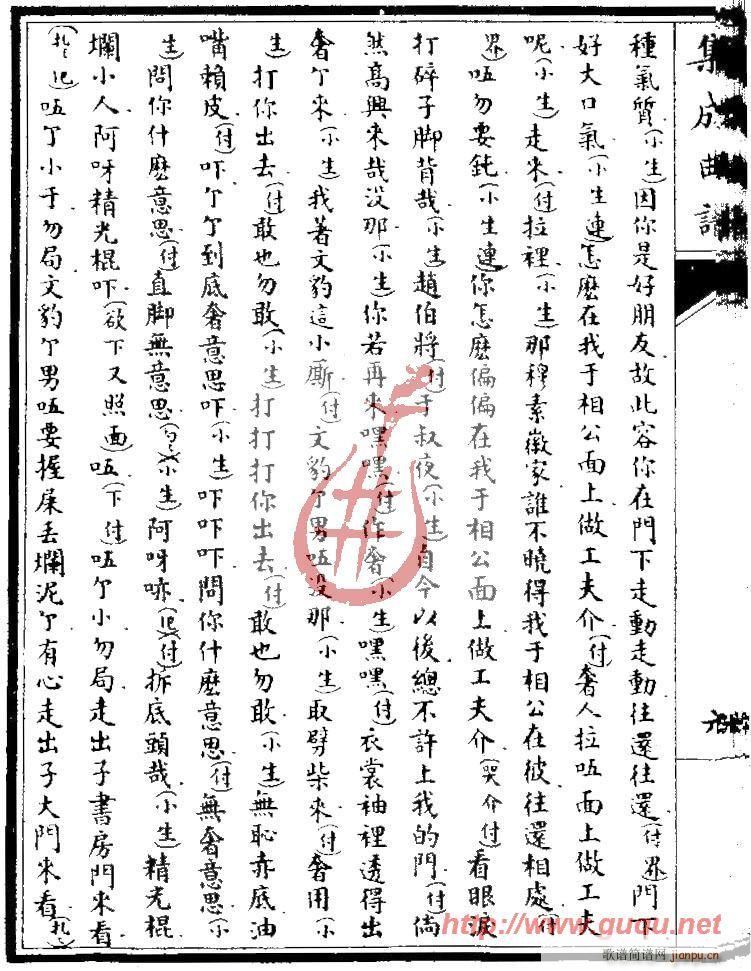 集成曲譜
種氣質(小生)因你是好朋友故此容你在門下走動走動往還往還(付)(界)門下
好大口氣(小生連)怎麽在我于相公面上做工夫介(付)奢人拉咗面上做工夫
呢(小生)走來(付)拉裡(小生)那穆素徽家誰不曉得我于相公在彼往還相處(付)
(界)咗勿要鈍(小生連)你怎麽偏偏在我于相公面上做工夫介(哭介付)看眼淚
打碎子脚背哉(小生)趙伯將(付)于叔夜(小生)自今以後總不許上我的門(付)倘
然高興來哉没那(小生)你若再來嘿嘿(付)作奢(小生)嘿嘿(付)衣裳袖裡透得出
奢个來(小生)我著文豹這小廝(付)文豹个男咗没那(小生)取劈柴來(付)奢用(小
生)打你出去(付)敢也勿敢(小生)打打打你出去(付)敢也勿敢(小生)無恥赤底油
嘴賴皮(付)吓个个到底奢意思吓(小生)吓吓吓問你什麽意思(付)無奢意思(小
生)問你什麽意思(付)直脚無意思(小生)阿呀啐(付)拆底頭哉(小生)精光棍
爛小人阿呀精光棍吓(欲下又照面)咗(下付)咗个小勿局走出子書房門來看
咗个小于勿局文豹个男咗要握屎丢爛泥个有心走出子大門來看
http://www.guqu.net
歌谱简谱网 jianpu.cn